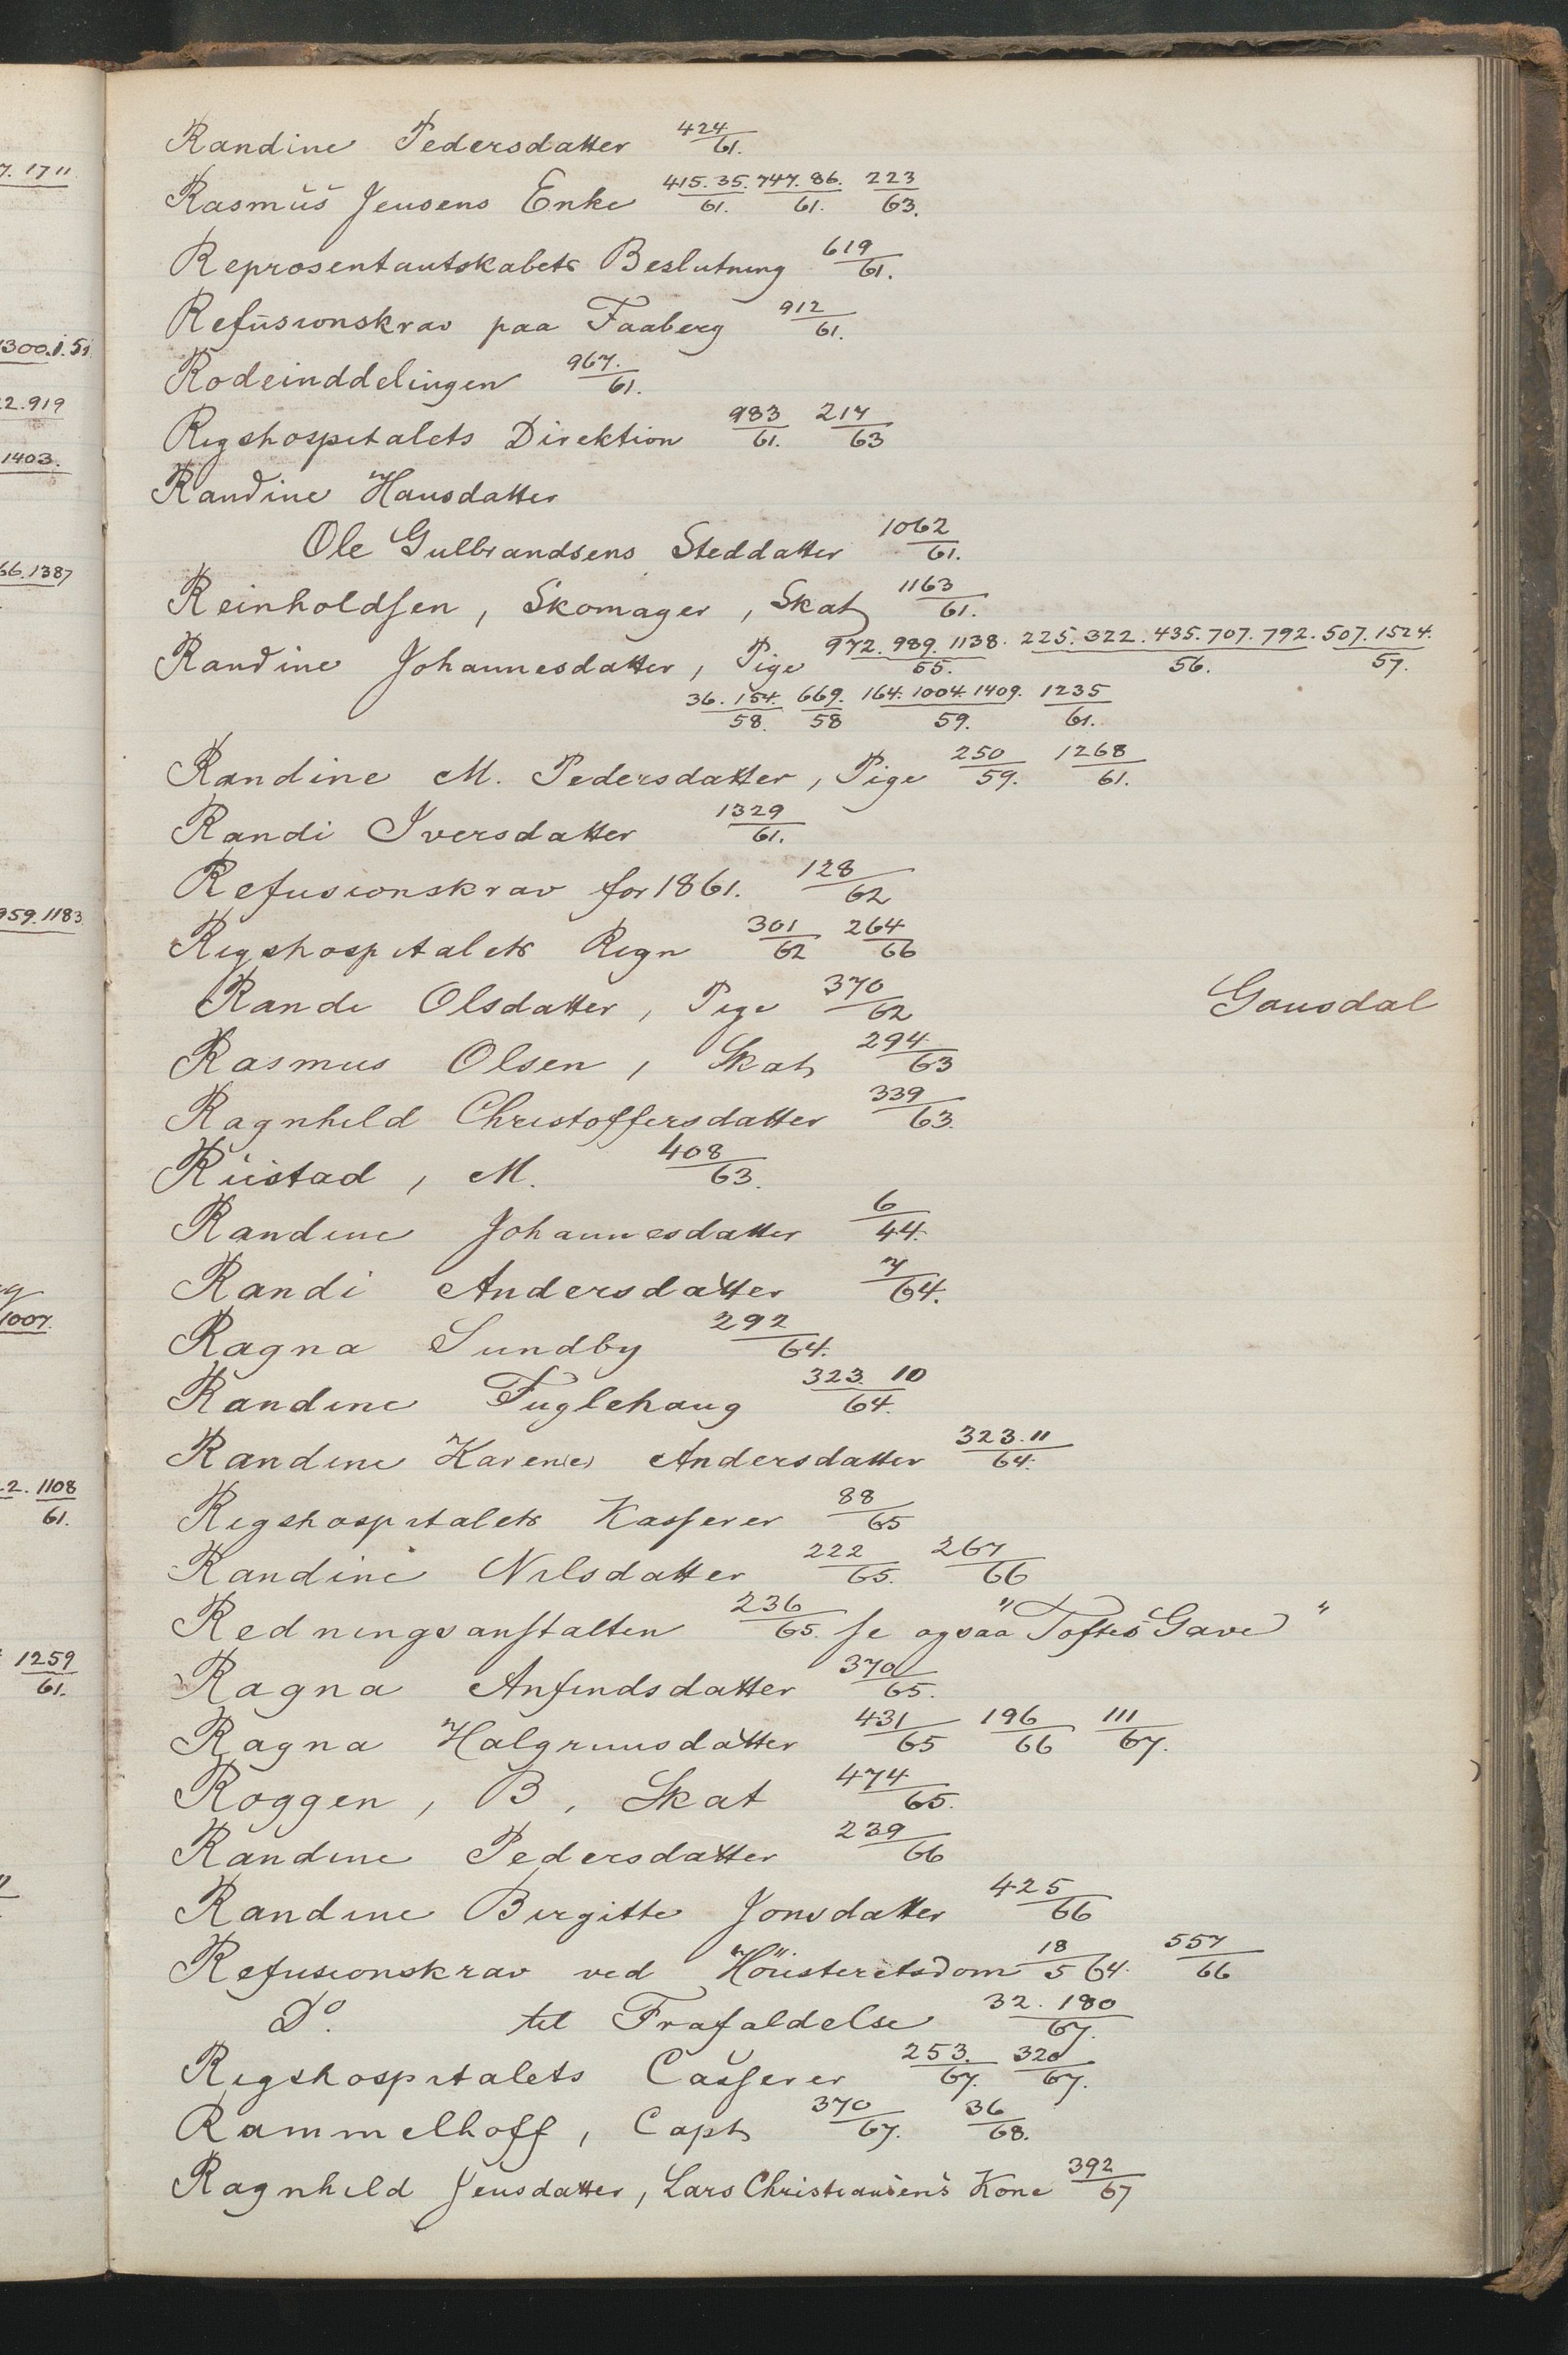 7. 1711
1300.1.51
22.919
1403.
66.1387
959.1183
1007.
2. 1108/61.
1259/61.
Randine Pedersdatter 424/61.
Rasmus Jensens Enke 415.35./61. 747.86./61. 223/63.
Reprosentantskabets Beslutning 619/61.
Refusionskrav paa Faaberg 912/61.
Rodeinddelingen 967./61.
Rigshospitalets Direktion 983/61. 217/63
Randine Hansdatter
Ole Gulbrandsens Steddatter 1062/61.
Reinholdsen, Skomager, Skat 1163/61.
Randine Johannesdatter, Pige 972.989.1138./55. 225.322.435.707.792./56. 507.1524./57.
36.154./58. 669./58 164.1004.1409./59. 1235/61.
Randine M. Pedersdatter, Pige 250/59. 1268/61.
Randi Iversdatter 1329/61.
Refusionskrav for 1861. 128/62
Rigshospitalets Regn 301/62 264/66
Randi Olsdatter, Pige 370/62 Gausdal
Rasmus Olsen, Skat 294/63
Ragnhild Christoffersdatter 339/63.
Rustad, M. 408/63.
Randine Johannesdatter 6/44.
Randi Andersdatter 7/64.
Ragna Sundby 292/64.
Randine Fuglehaug 323. 10/64.
Randine Karen(e) Andersdatter 323.11/64.
Rigshospitalets Kasserer 88/65
Randine Nilsdatter 222/65. 267/66
Redningsanstalten 236/65. se ogsaa "Toftes Gave"
Ragna Anfindsdatter 370/65.
Ragna Halgrimsdatter 431/65 196/66 111/67.
Roggen, B, Skat 474/65.
Randine Pedersdatter 239/66
Randine Birgitte Jonsdatter 425/66
Refusionskrav ved Höiesteretsdom 18/5 64. 557/66
Do. til Frafaldelse 32. 180/67.
Rigshospitalets Casserer 253./67. 320/67.
Rammelhoff, Capt 370/67. 36/68.
Ragnhild Jensdatter, Lars Christiansens Kone 392/67